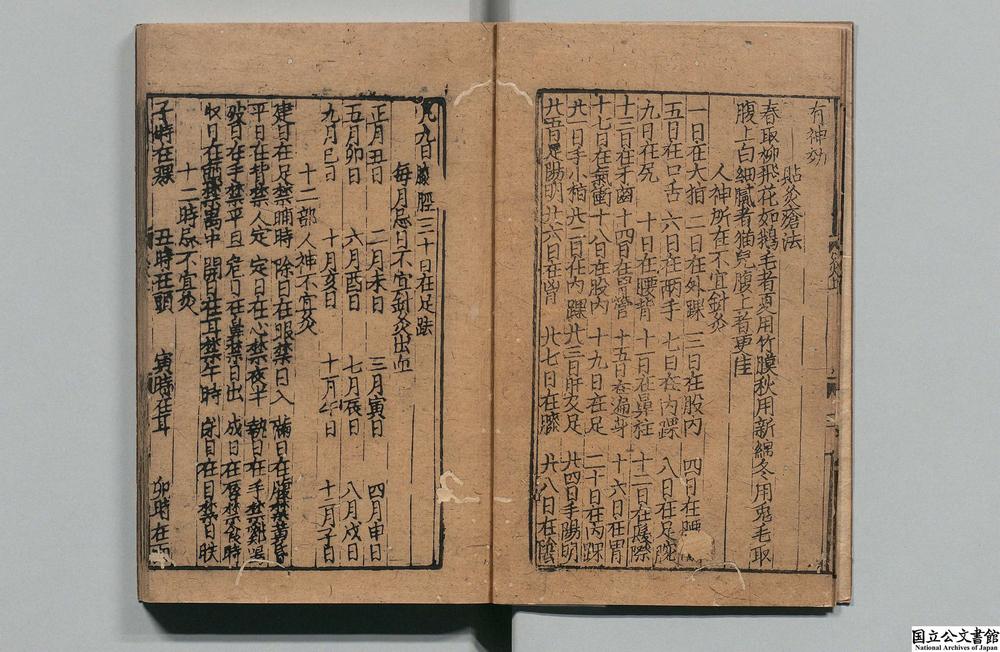 有神効
貼灸瘡法
春取柳飛花如鵝毛者夏用竹膜秋用新綿冬用兎毛取
腹上白細膩者猫兒腹上者更佳
人神所在不宜針灸
一日在大指 二日在外踝 三日在股内 四日在腰
五日在口舌 六日在兩手 七日在内踝 八日在足腕
九日在尻 十日在腰背 十一日在鼻柱 十二日在髮際
十三日在牙齒 十四日在胃管 十五日在遍身 十六日在胃
十七日在氣衝 十八日在股内 十九日在足 二十日在内踝
廿一日手小指 廿二日在外踝 廿三日肝及足 廿四日手陽明
廿五日足陽明 廿六日在胷 廿七日在膝 廿八日在陰
廿九日膝脛三十日在足趺
毎月忌日不宜針灸出血
正月丑日 二月未日 三月寅日 四月申日
五月卯日 六月酉日 七月辰日 八月戌日
九月巳日 十月亥日 十一月午日 十二月子日
十二部人神不宜灸
建日在足禁晡時 除日在眼禁日入 滿日在腹禁黄昏
平日在背禁人定 定日在心禁夜半 執日在手禁鷄鳴
破日在手禁平旦 危日在鼻禁日出 成日在唇禁食時
収日在 禁禺中 開日在耳禁午時 閉日在目禁日昳
十二時忌不宜灸
子時在踝 丑時在頭 寅時在耳 卯時在
国立公文書館
National Archives of Japan